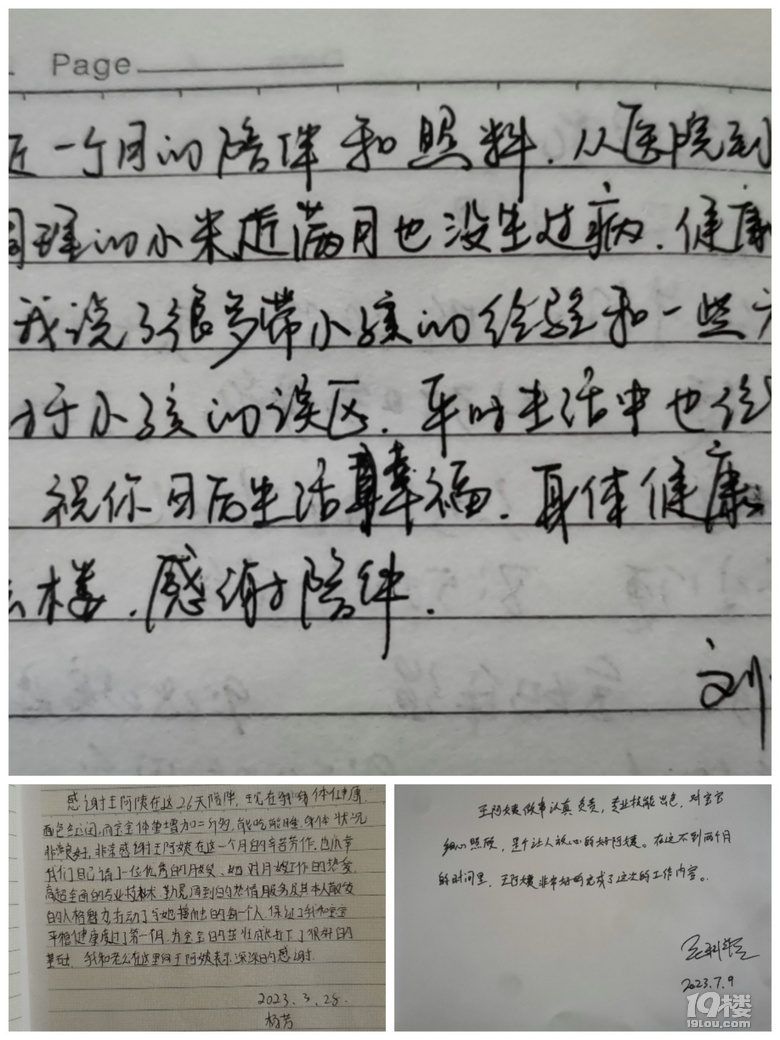 Page
近一个月的陪伴和照料.从医院到
理的小米近满月也没生过病.健康
我说了很多带小孩的经验和一些
于小孩的误区.平时生活中也
祝你日后生活幸福.身体健康
楼.感谢陪伴.
刘
感谢王阿姨在这26天陪伴,现在我身体健康,
面色红润,而宝宝体重增加二斤多,能吃能睡,身体状况
非常良好,非常感谢王阿姨在这一个月的辛苦劳作,也庆幸
我们自己请了一位优秀的月嫂,她对月嫂工作的热爱
高超全面的专业技术,勤恳周到的热情服务及其本人散发
的人格魅力打动了与她接触的每一个人,保证了我和宝宝
平稳健康度过了第一个月,为宝宝的茁壮成长打下了很好的
基础.我和老公在这里向王阿姨表示深深的感谢.
2023.3.28.
杨芳
王阿姨做事认真负责,专业技能出色,对宝宝
细心照顾,是个让人放心的好阿姨。在这不到两个月
的时间里,王阿姨非常好的完成了这次的工作内容。
2023.7.9
19楼
19lou.com